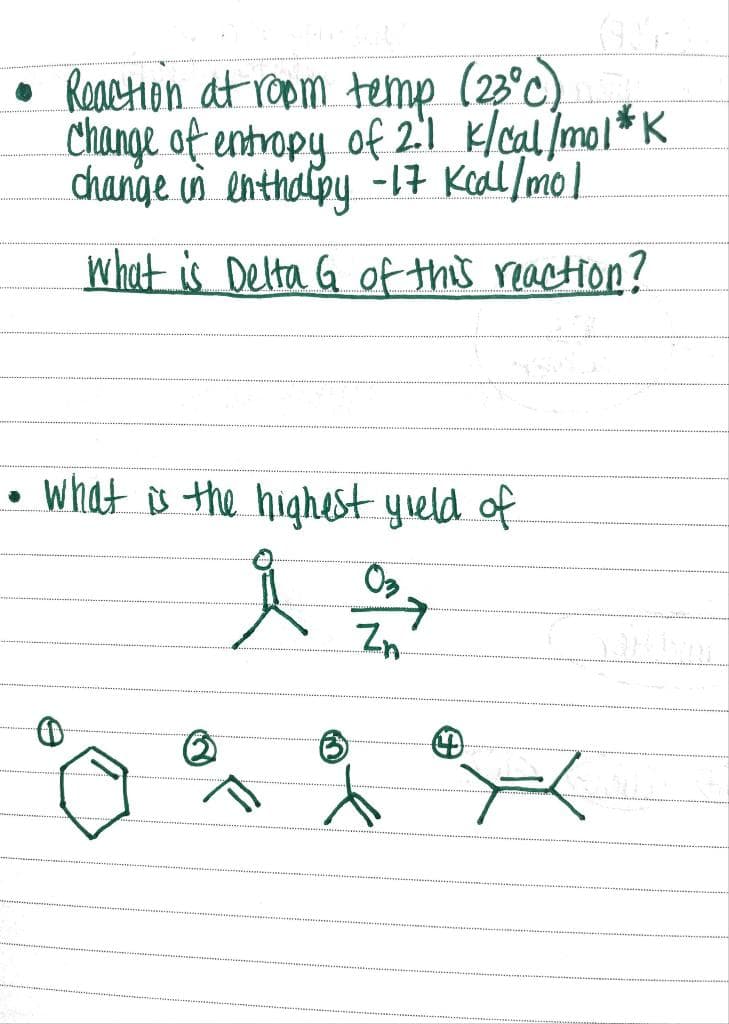 • Reaction at room temp (23°C)
Change of entropy of 2.1 K/cal/mol*K
change in enthalpy -17 Kcal/mol
What is Delta G of this reaction?
• What is the highest yield of
O
O3
Zn
① ② ③ ④